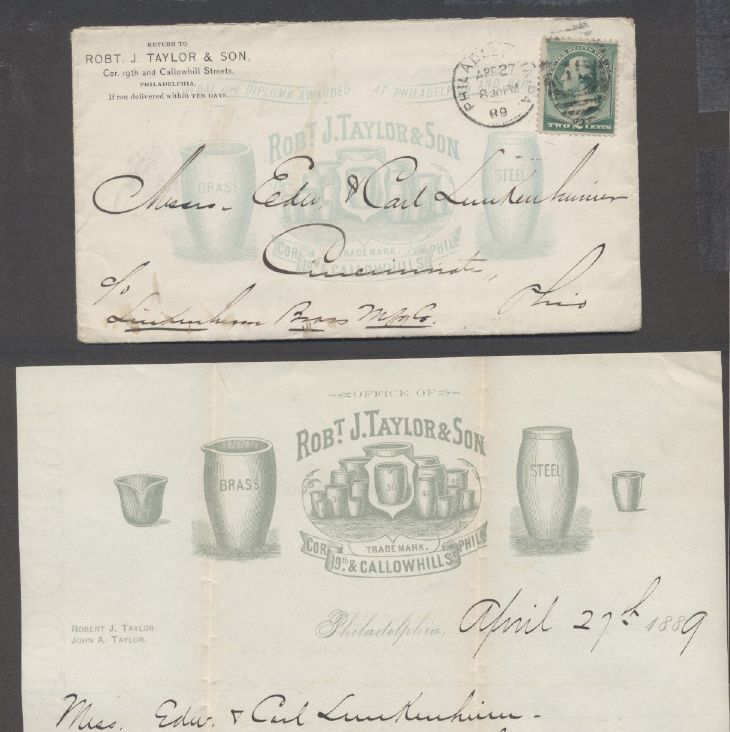 RETURN TO
ROBT. J. TAYLOR & SON,
Cor. 19th and Callowhill Streets,
PHILADELPHIA,
If not delivered within TEN DAYS.
MEDAL and DIPLOMA AWARDED AT PHILADELP
PHILADEL PA.
APR 27
8 30PM
89
TWO 2 CENTS
ROBT J. TAYLOR & SON
BRASS
STEEL
TRADE MARK.
COR 19th & CALLOWHILL S PHIL
Messrs. Edw. & Carl Lunkenheimer
Cincinnati,
Ohio
c/o
Lunkenheim Brass Mfg Co.
OFFICE OF
ROBT J. TAYLOR & SON
BRASS
STEEL
TRADE MARK.
COR 19th & CALLOWHILL S PHIL
ROBERT J. TAYLOR.
JOHN A. TAYLOR.
Philadelphia, April 27th 1889
Mess. Edw. & Carl Lunkenheim -